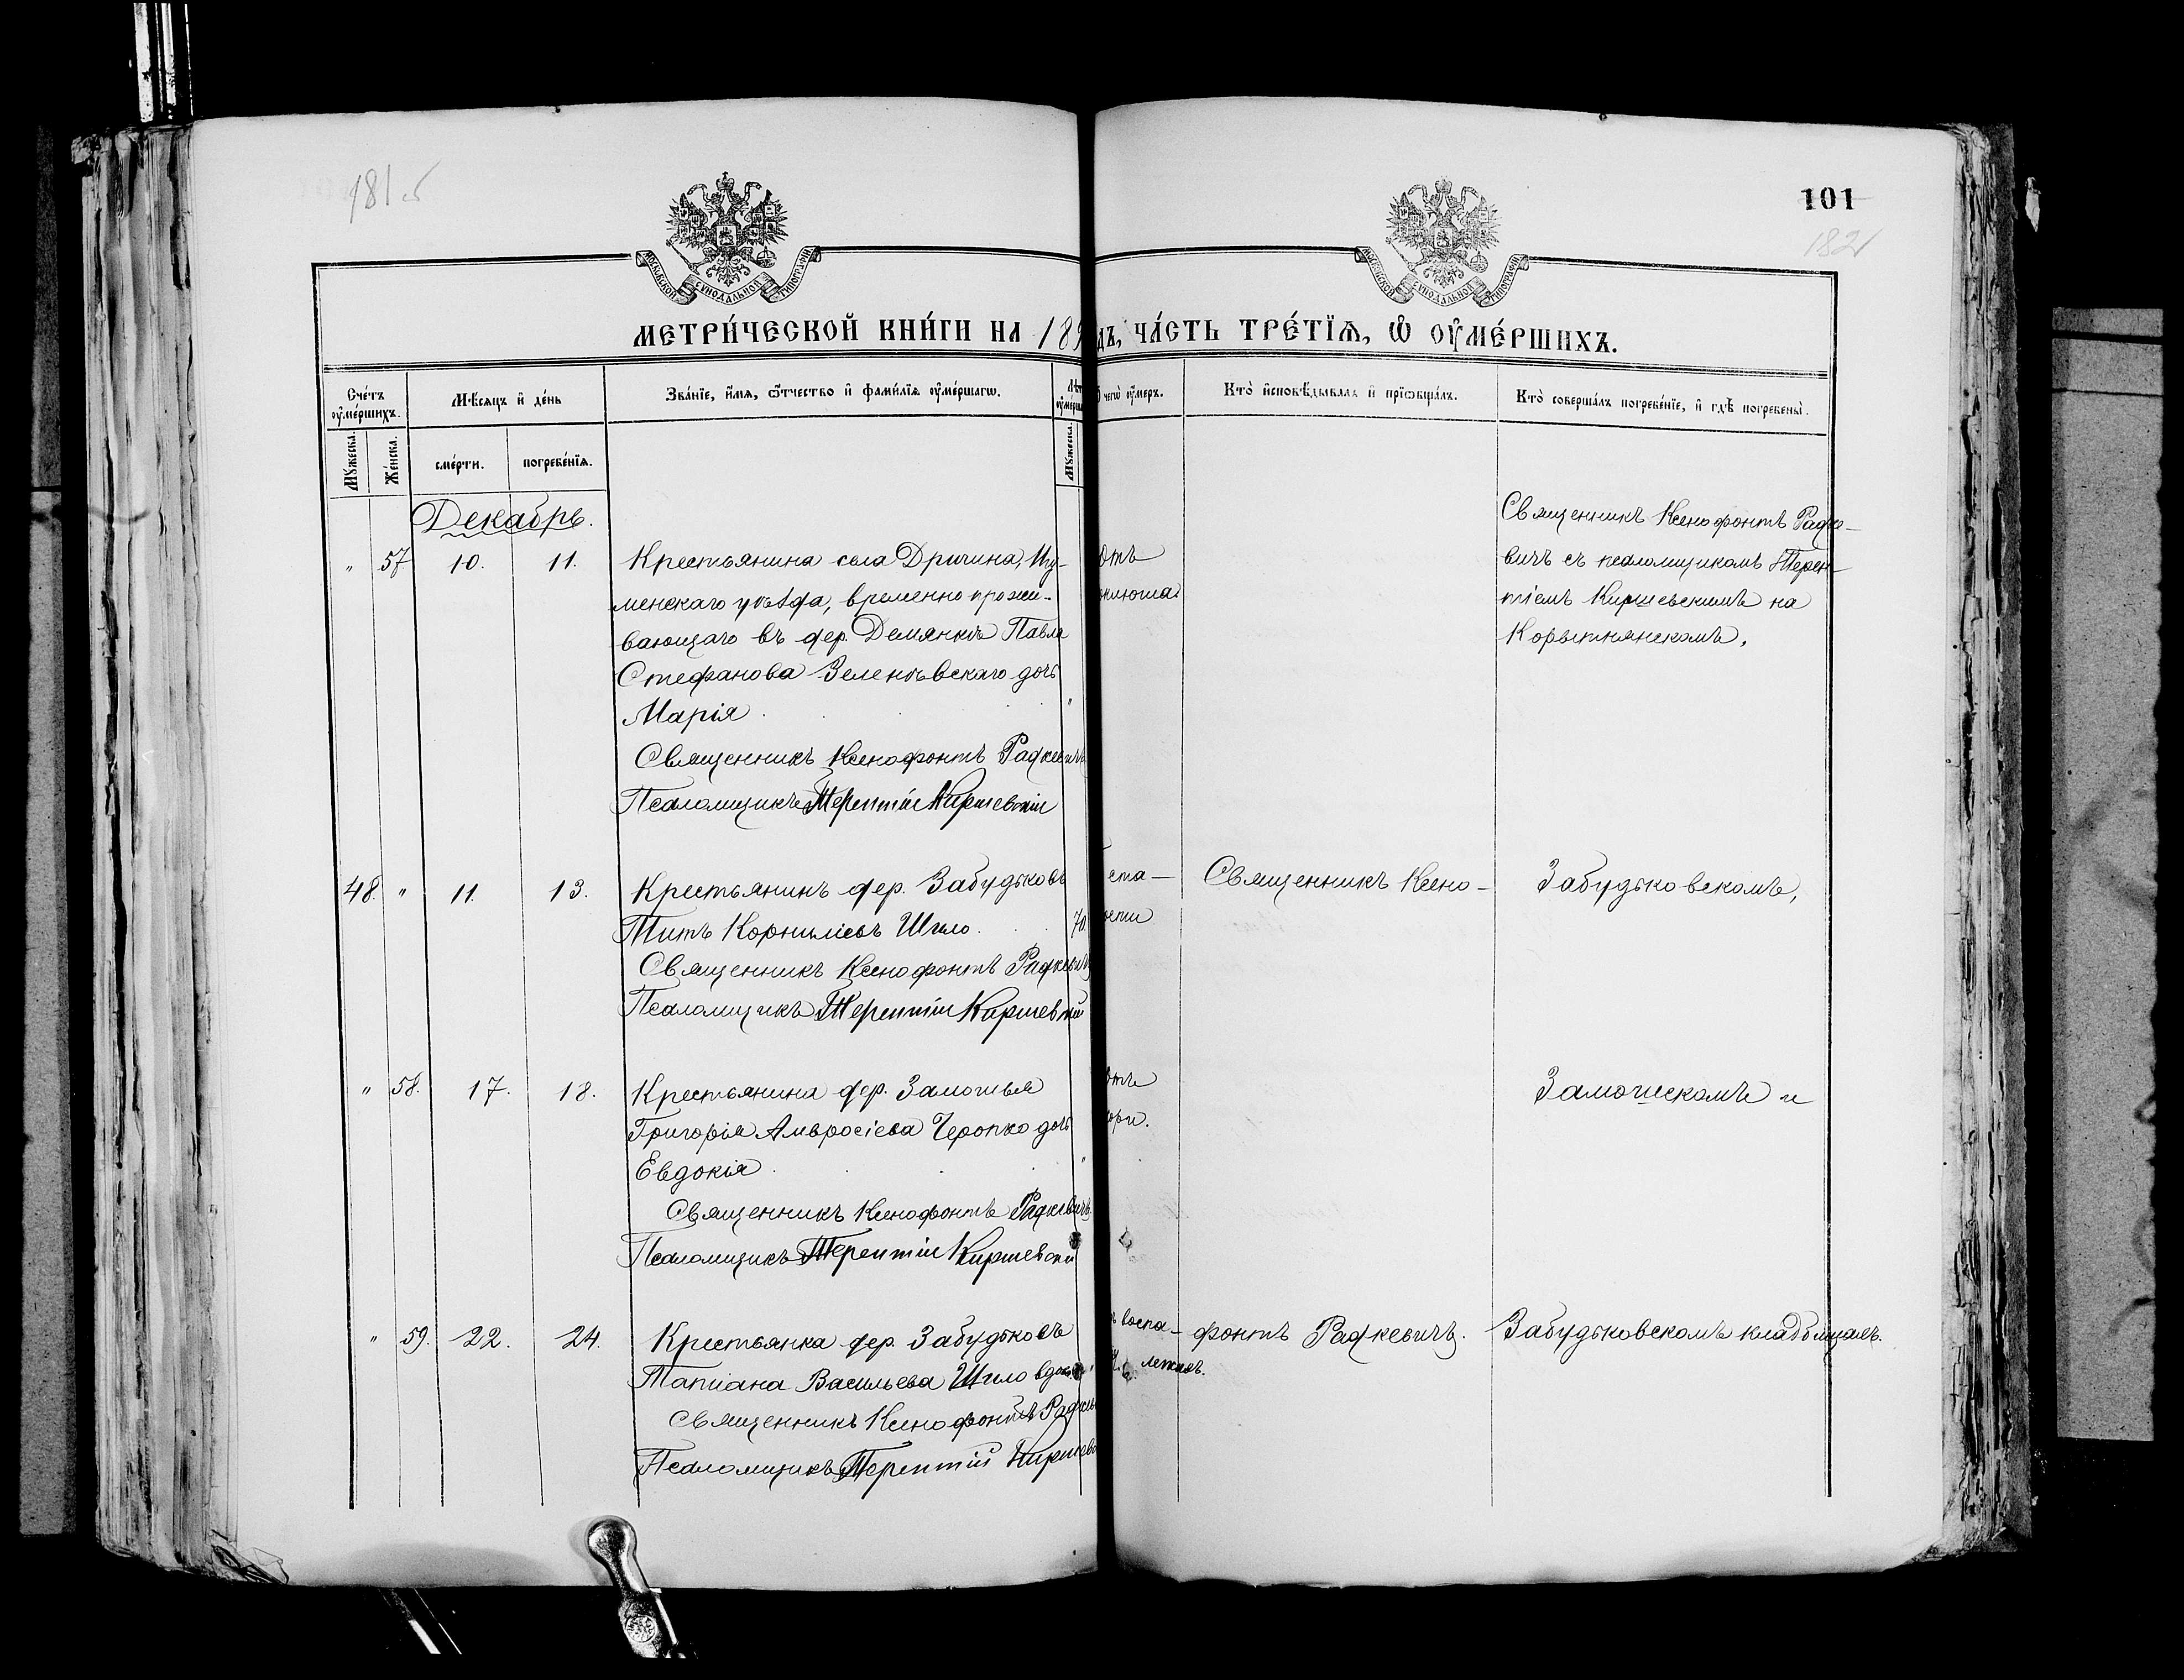 181 об
101
182
МОСКОВСКОЙ СѴНОДАЛЬНОЙ ТИПОГРАФІИ
МОСКОВСКОЙ СѴНОДАЛЬНОЙ ТИПОГРАФІИ
МЕТРИ́ЧЕСКОЙ КНИ́ГИ НА 189
дъ, ЧА́СТЬ ТРЕ́ТЇѦ, Ѡ ОУ҆МЕ́РШИХЪ.
Сче́тъ оу҆ме́ршихъ.
Мѣсяцъ и҆ де́нь
Зва́нїе, и҆́мѧ, ѻ҆́тчество и҆ фами́лїѧ оу҆ме́ршагѡ.
Лѣт
оу҆ме́рша
чегѡ̀ оу҆́меръ.
Кто̀ и҆сповѣ́дывалъ и҆ прїѡбща́лъ.
Кто̀ соверша́лъ погребе́нїе, и҆ гдѣ̀ погребены̀.
Мꙋ́жеска.
Же́нска.
сме́рти.
погребе́нїѧ.
Мꙋ́жеска.
Декабрь.
" 57 10. 11. Крестьянина села Дричина, Игу-
менскаго уѣзда, временно прожи-
вающаго въ дер. Демянкѣ Павла
Стефанова Зеленѣвскаго дочь
Марія .
Священникъ Ксенофонтъ Радкевичъ
Псаломщикъ Терентій Киршевскій
отъ
коклюша
Священникъ Ксенофонтъ Радке-
вичъ съ псаломщикомъ Терен-
тіемъ Киршевскимъ на
Корытнянскомъ,
48. " 11. 13. Крестьянинъ дер. Забудьковъ
Титъ Корниліевъ Шило . 70.
Священникъ Ксенофонтъ Радкевичъ
Псаломщикъ Терентій Киршевскій
ста-
ости
Священникъ Ксено-
Забудьковскомъ,
" 58. 17. 18. Крестьянина дер. Замошья
Григорія Амвросіева Черопко дочь
Евдокія .
Священникъ Ксенофонтъ Радкевичъ.
Псаломщикъ Терентій Киршевскій
отъ
кори.
Замошскомъ и
" 59. 22. 24. Крестьянка дер. Забудьковъ
Татіана Васильева Шило вдова
Священникъ Ксенофонтъ Радкев
Псаломщикъ Терентій Киршевс
воспа-
легкихъ.
фонтъ Радкевичъ.
Забудьковскомъ кладбищахъ.